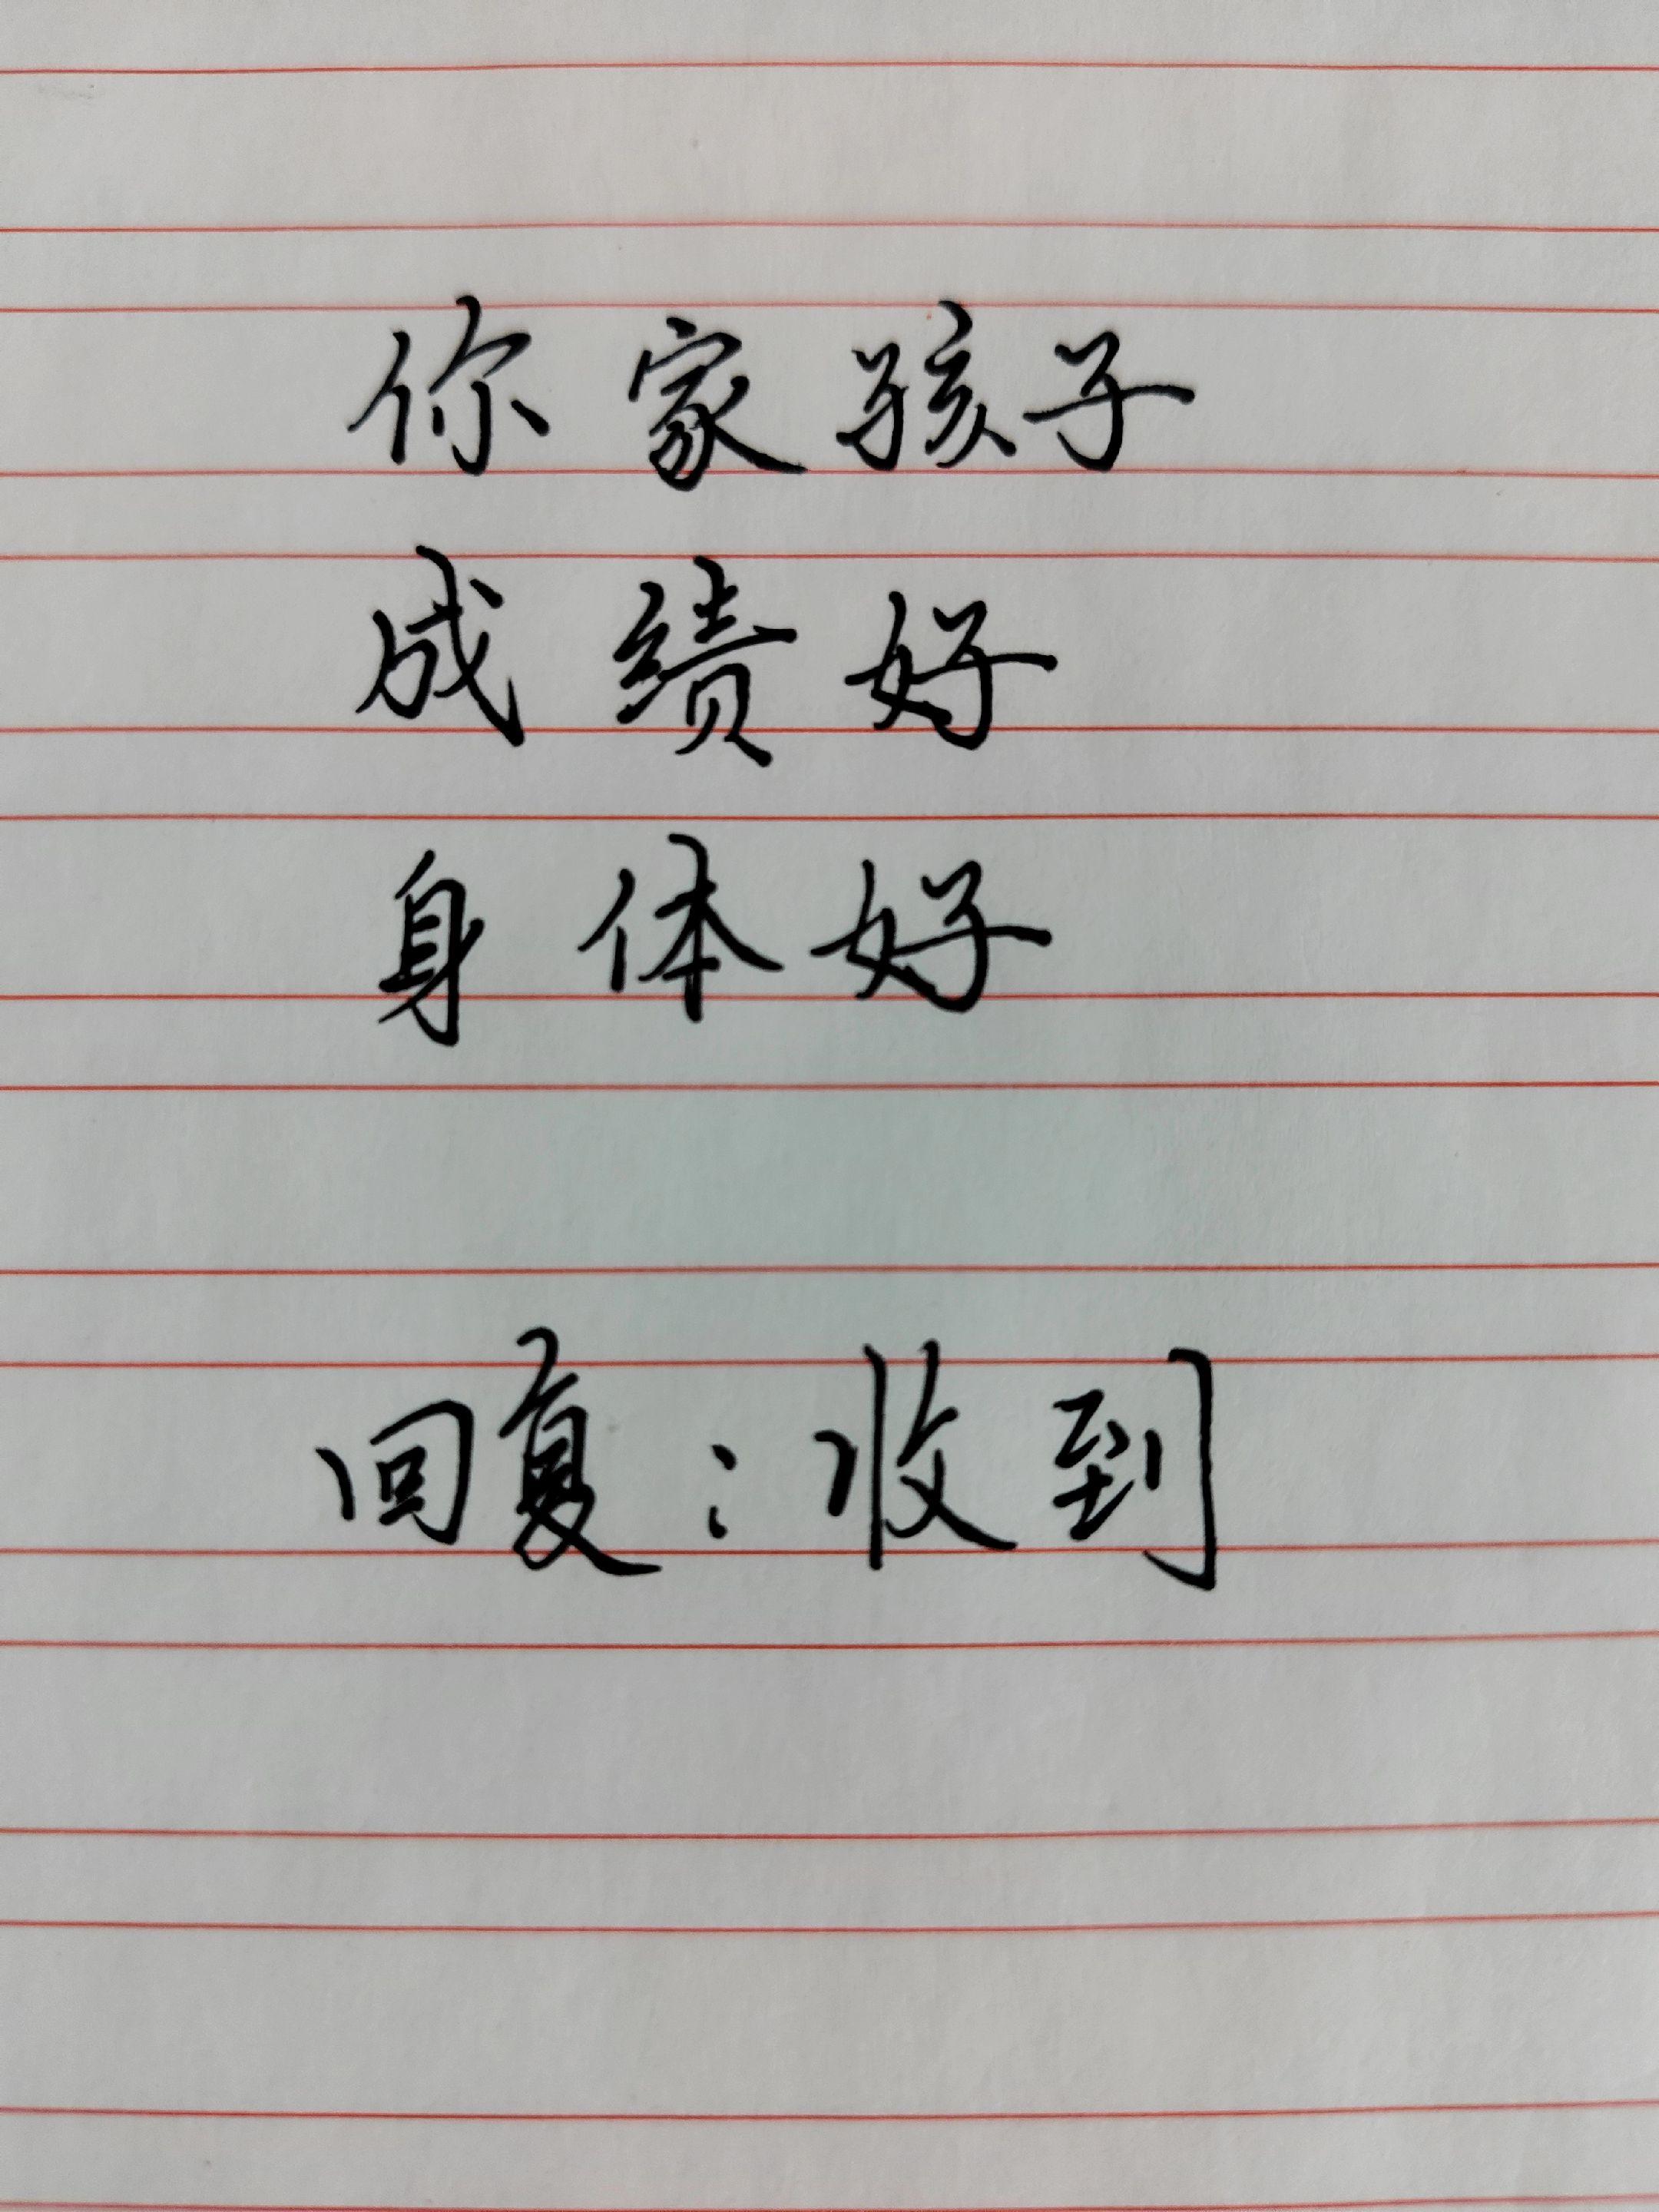 你家孩子
成绩好
身体好
回复：收到